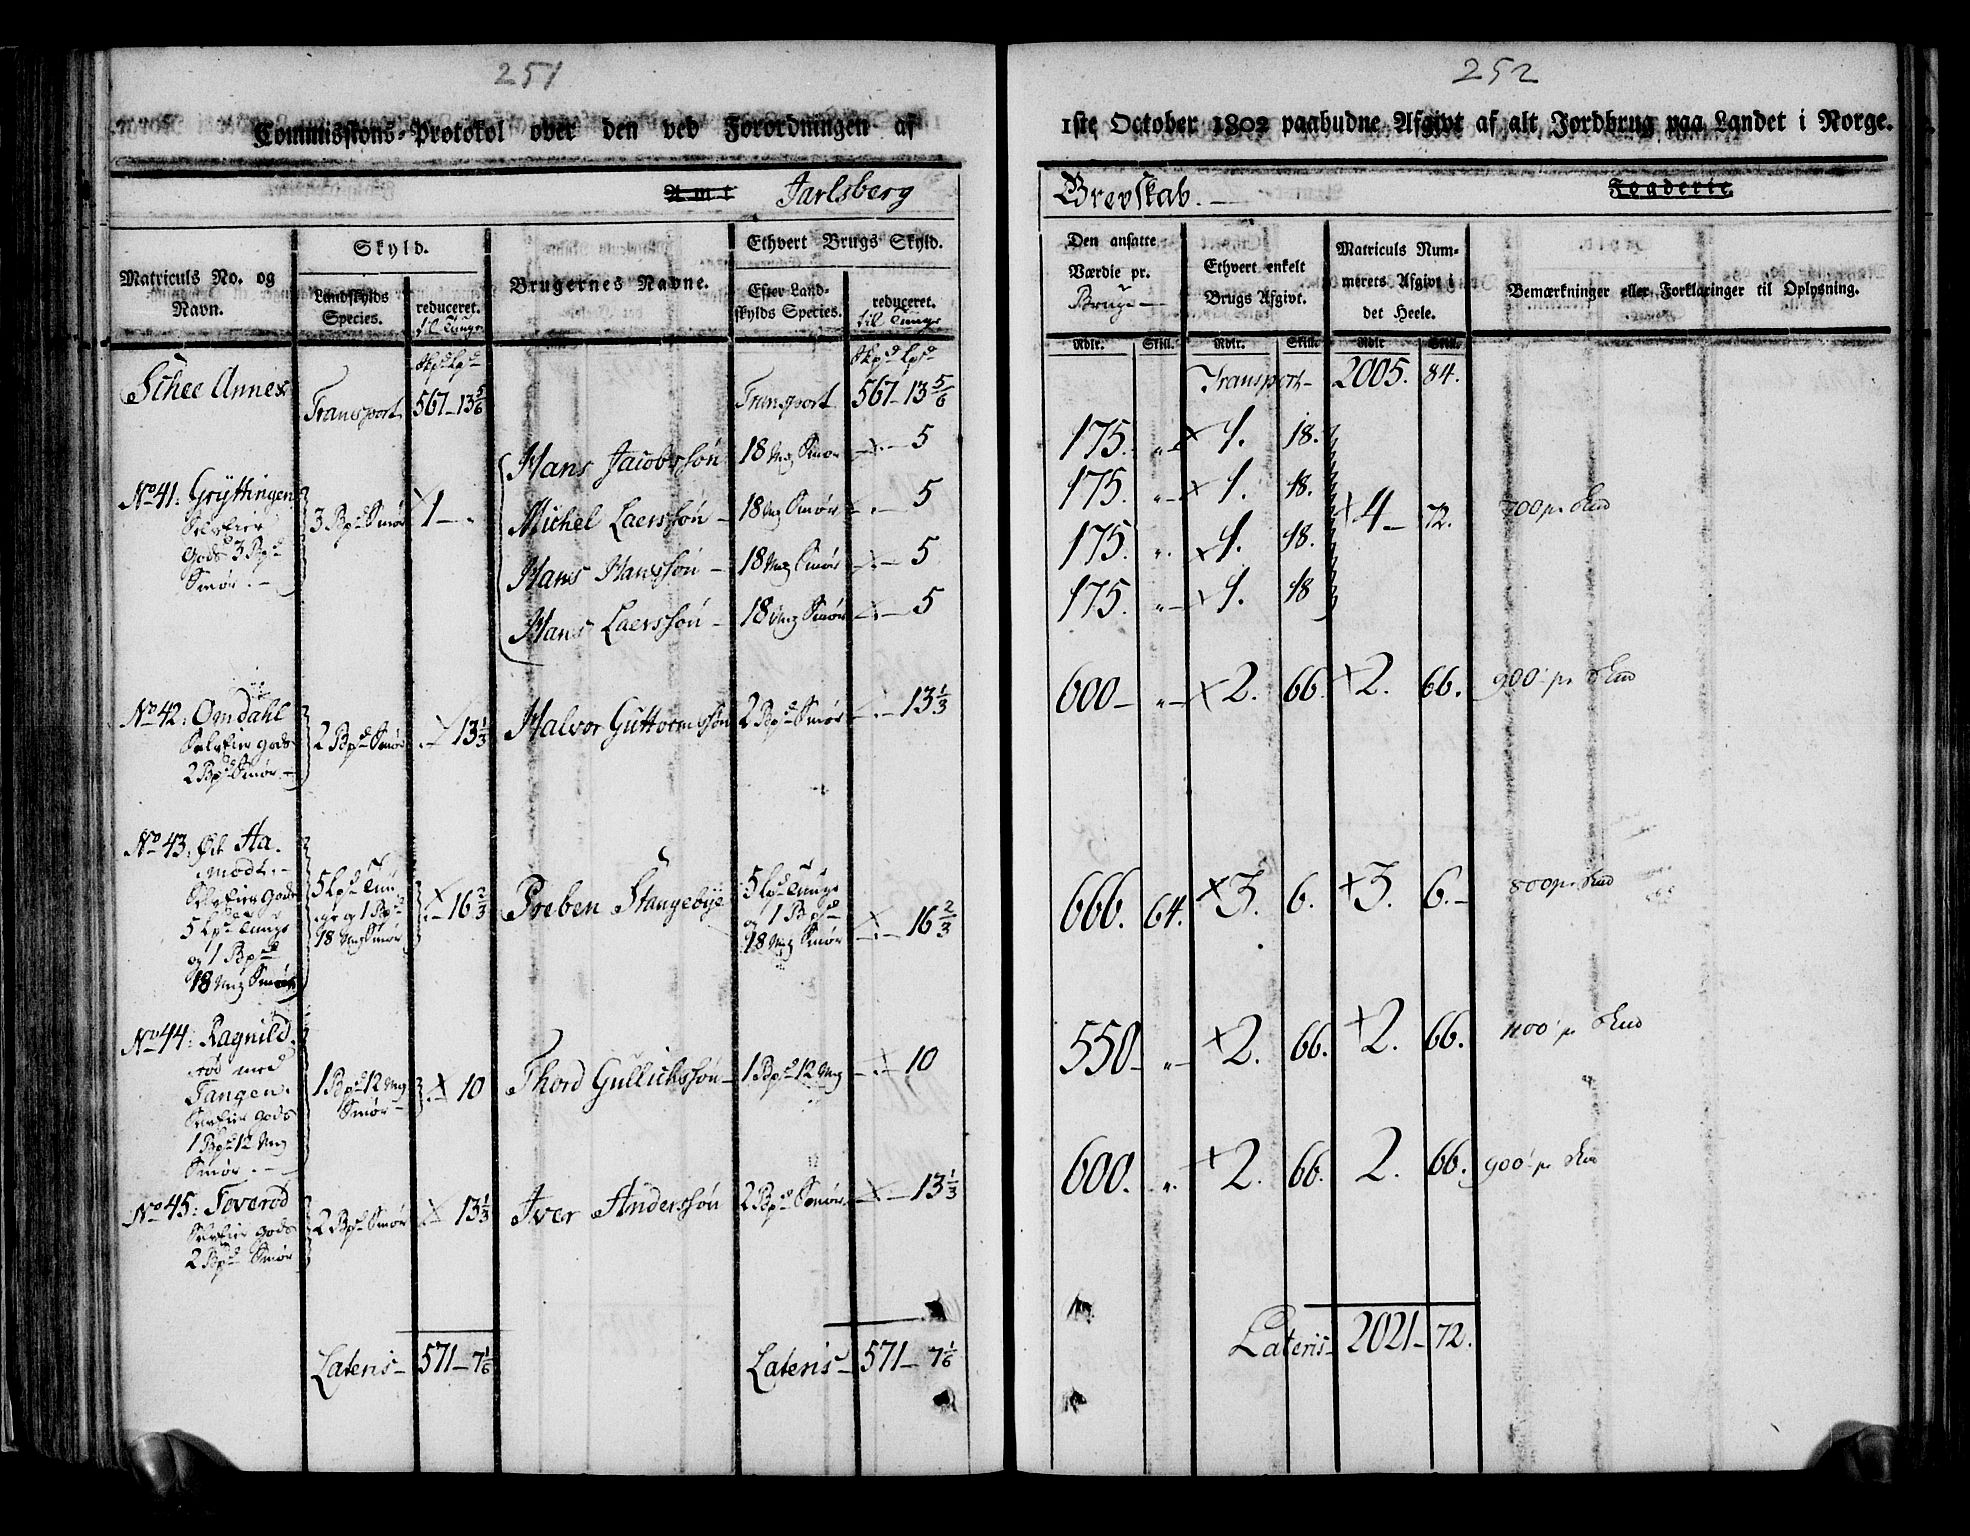 251
Commissions-Protokol over den ved Forordningen af
Amt Jarlsberg
Matriculs No. og Navn.
Skyld.
Landskylds Species.
reduceret. til Tunge
Brugernes Navne.
Ethvert Brugs Skyld.
Efter Landskylds Species.
reduceret. til Tunge
Schee Annex
Transport
567 - 13 5/6
Transport
567 - 13 5/6
No 41: Gryttingen
Selveier
Gods 3 Bpd
Smør. -
3 Bpd Smør
1 - .
Hans Jacobssøn
18 Mg Smør
5
Michel Laerssøn -
18 Mg Smør
5
Hans Hanssøn -
18 Mg Smør
5
Hans Laerssøn -
18 Mg Smør
5
No 42: Omdahl
Selveier gods
2 Bpd Smør -
2 Bpd Smør
13 1/3
Halvor Guttormssøn
2 Bpd Smør
13 1/3
No 43: Øst Ha-
modt. -
Selveier Gods
5 Lpd Tunge
og 1 Bpd
18 Mg Smør
5 Lpd Tun-
ge og 1 Bpd
18 Mg Smør
16 2/3
Preben Stangebye
5 Lpd Tunge
og 1 Bpd
18 Mg Smør
16 2/3
No 44: Ragnild-
rød med
Tangen.
Selveier gods
1 Bpd 12 Mg
Smør. -
1 Bpd 12 Mg
Smør -
10
Thord Gullichssøn -
1 Bpd 12 Mg
10
No 45: Toverød
Selveier gods
2 Bpd Smør
2 Bpd Smør
13 1/3
Iver Anderssøn
2 Bpd Smør
13 1/3
Lateris -
571 - 7 1/6
Lateris -
571 - 7 1/6
252
1ste October 1802 paabudne Afgivt af alt Jordbrug paa Landet i Norge.
Grevskab. -
Fogderie
Den ansatte Værdie pr. Brug -
Ethvert enkelt Brugs Afgivt.
Matriculs Nummerets Afgivt i det Heele.
Bemærkninger eller Forklaringer til Oplysning.
Rdlr. Skill. Rdlr. Skill. Rdlr. Skill.
Transport - 2005. 84.
175. „ - 1. 18.
175. „ - 1. 18.
4 - 72.
700 pr
175. „ 1. 18.
175. „ - 1. 18
600 - „ - 2. 66. 2. 66. 900 pr
666. 64. 3. 6. 3. 6. - 800 pr
550 - „ - 2. 66. 2. 66. 1100 pr
600. „ 2. 66. 2. 66. 900 pr
Lateris - 2021 - 72.